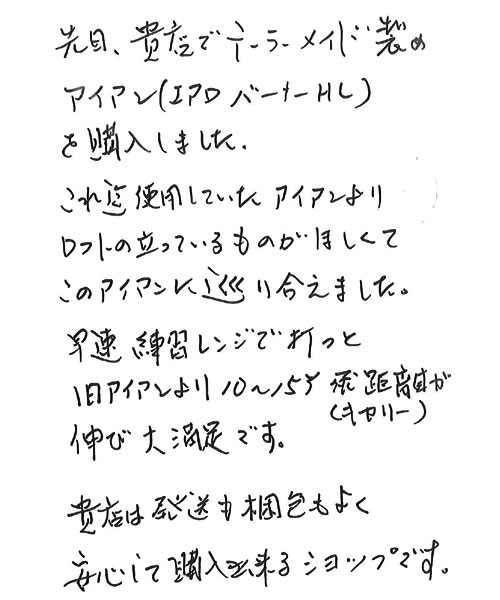 先日、貴店でテーラーメイド製の
アイアン(エアロバーナーHL)
を購入しました.
これ迄使用していたアイアンより
ロフトの立っているものがほしくて
このアイアンに巡り合えました。
早速練習レンジで打つと
旧アイアンより10〜15Y 飛距離が
(キャリー)
伸び大満足です。
貴店は発送も梱包もよく
安心して購入出来るショップです。